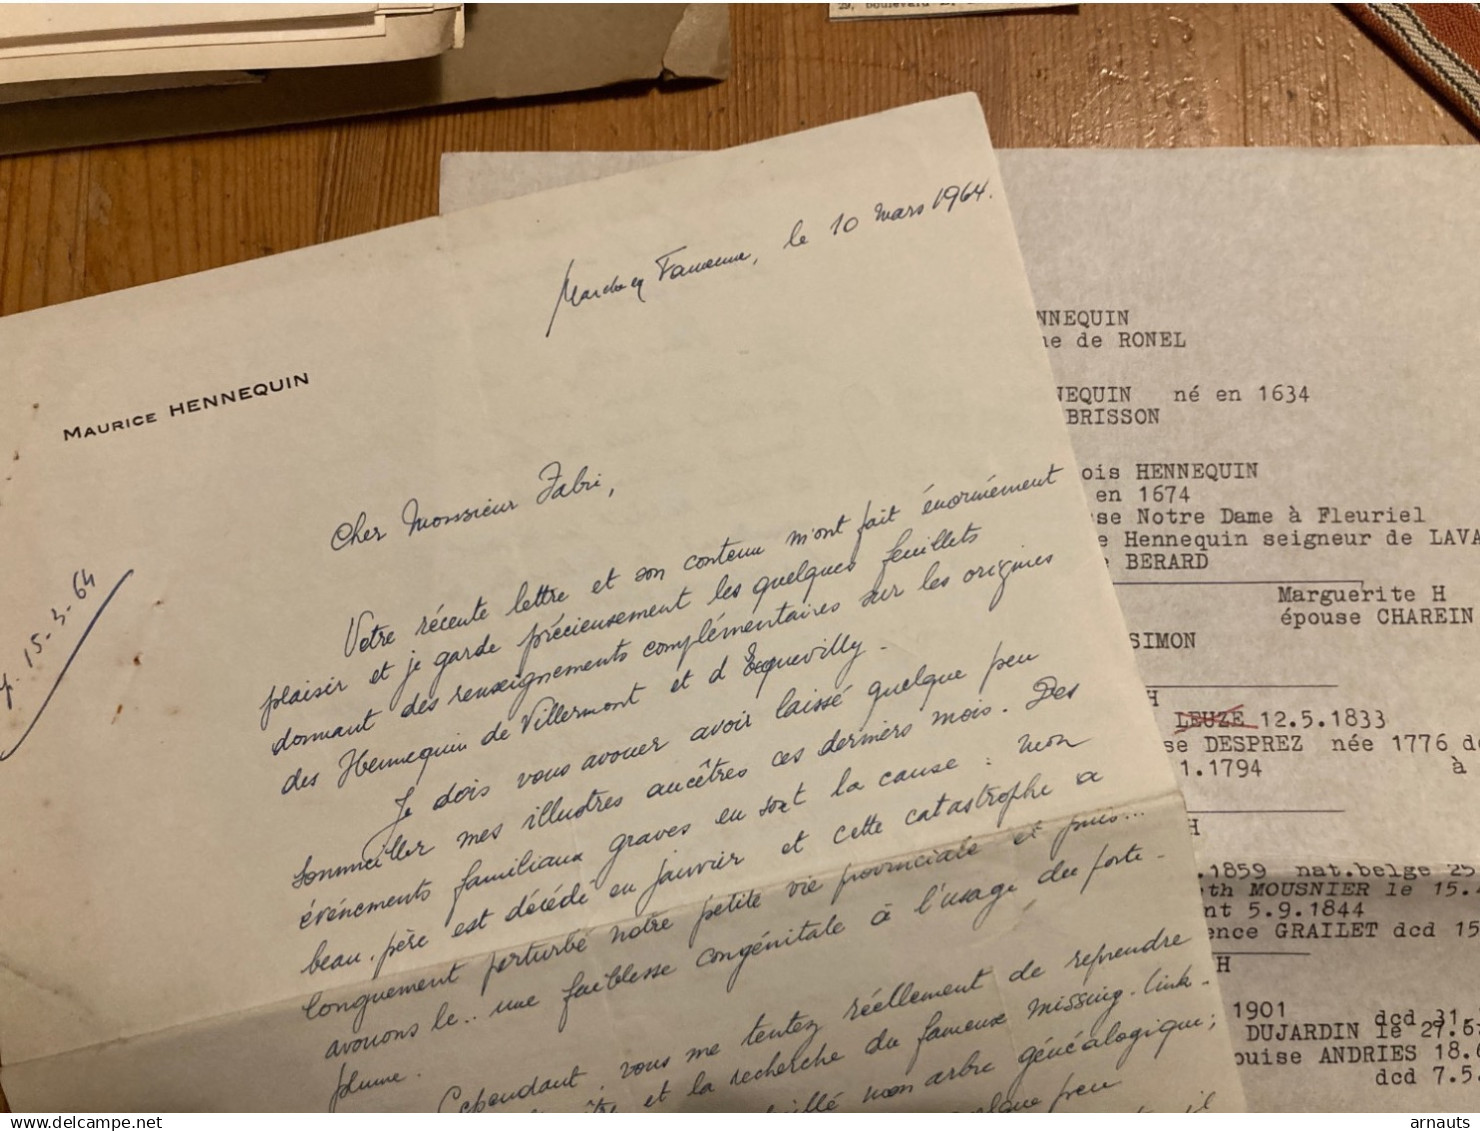 29, boulevard
MAURICE HENNEQUIN
le 10 mars 1964.
15-3-64
Cher Monsieur Fabri,
Votre récente lettre et son contenu m'ont fait énormément
plaisir et je garde précieusement les quelques feuillets
donnant des renseignements complémentaires sur les origines
des Hennequin de Villermont et d'Ecquevilly.
Je dois vous avouer avoir laissé quelque peu
sommeiller mes illustres ancêtres ces derniers mois. Des
événements familiaux graves en sont la cause : mon
beau-père est décédé en janvier et cette catastrophe a
longuement perturbé notre petite vie provinciale et puis...
avouons le.. une faiblesse congénitale à l'usage du porte-
plume.
Cependant, vous me tentez réellement de reprendre
et la recherche du fameux missing-link-
mon arbre généalogique;
peu
il
NNEQUIN
ne de RONEL
NEQUIN né en 1634
BRISSON
ois HENNEQUIN
en 1674
se Notre Dame à Fleuriel
e Hennequin seigneur de LAVA
e BERARD
Marguerite H
épouse CHAREIN
SIMON
H
LEUZE 12.5.1833
se DESPREZ née 1776 dc
1.1794 à
H
.1859 nat.belge 25
th MOUSNIER le 15.
nt 5.9.1844
ence GRAILET dcd 15
H
1901 dcd 31.
DUJARDIN le 27.6
ouise ANDRIES 18.6
dcd 7.5.
arnauts